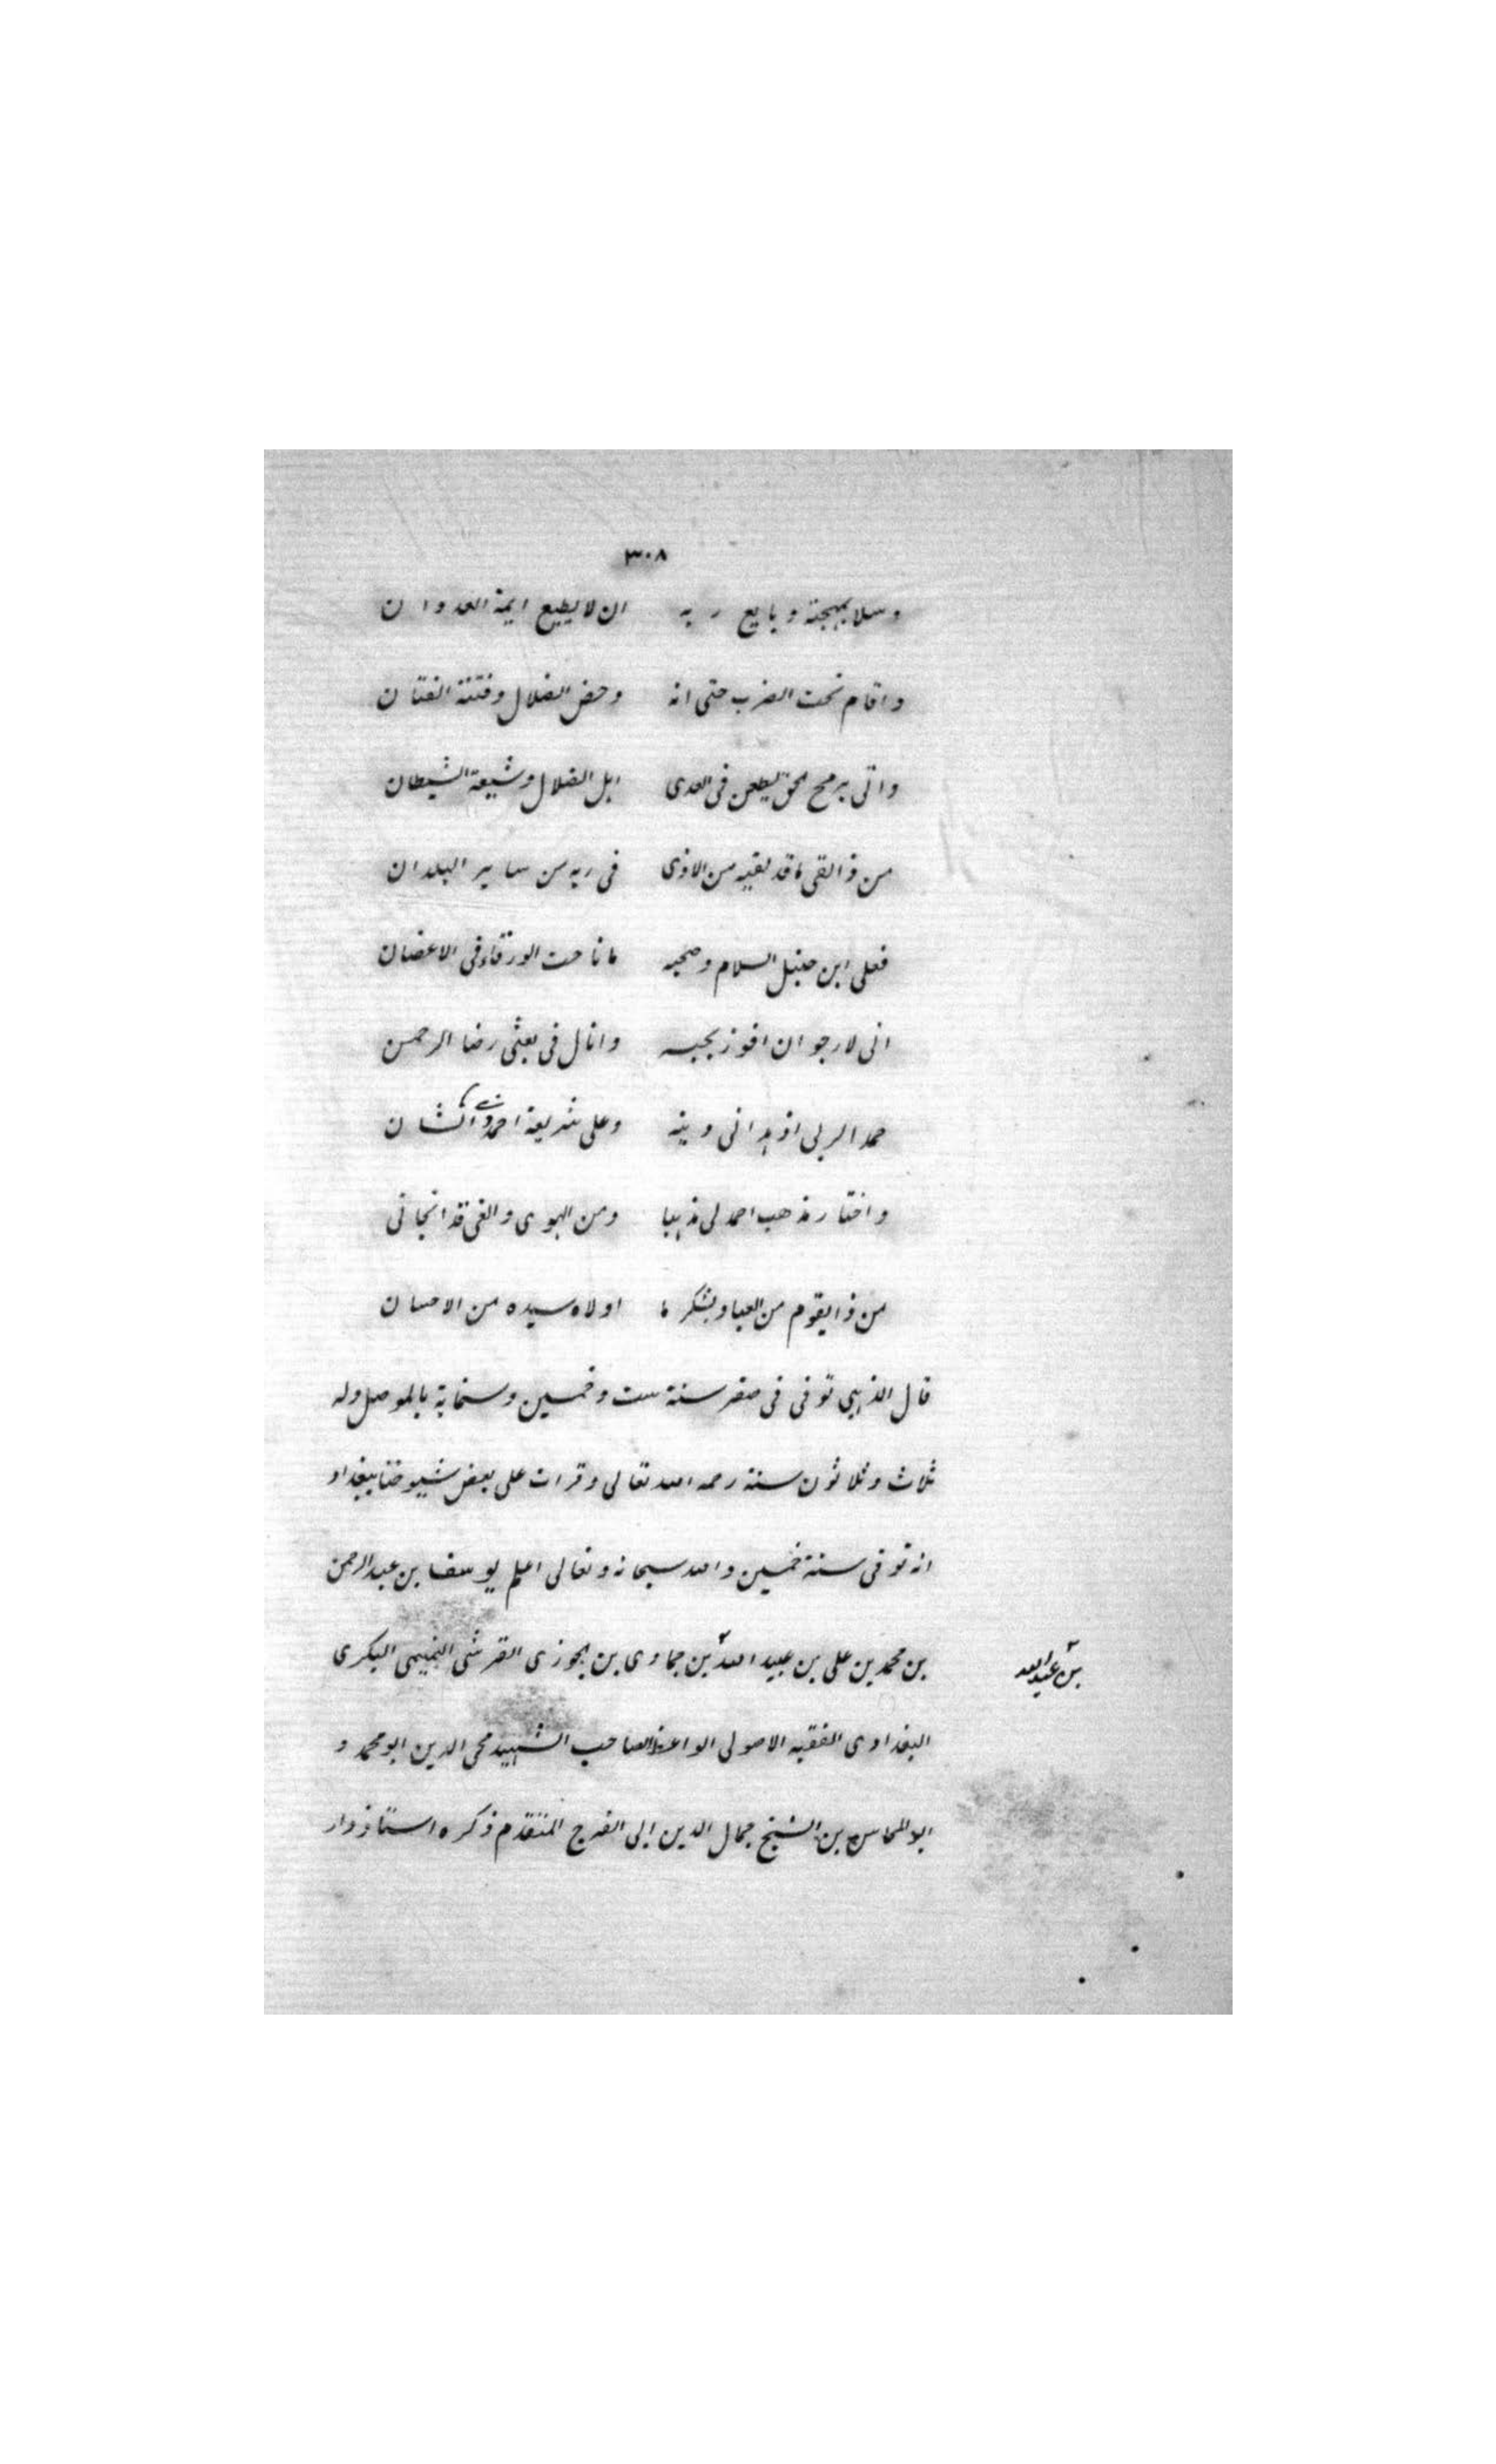 ٣٠٨
وسلا بمهجته وبايع ربه ان لا يطيع ايمة العدوان
واقام تحت الضرب حتى انه دحض الضلال وفتنة الفتان
واتى برمح الحق يطعن فى العدى اهل الضلال وشيعة الشيطان
من ذا لقى ما قد لقيه من الاذى فى ربه من ساير البلدان
فعلى ابن حنبل السلام وصحبه ما ناحت الورقاء فى الاغصان
انى لارجو ان افوز بحبه وانال فى بعثى رضا الرحمن
حمدا لربى اذ هدانى دينه وعلى شريعة احمد انشان
واختار مذهب احمد لى مذهبا ومن الهوى والغى قد انجانى
من ذا يقوم من العباد بشكر ما اولاه سيده من الاحسان
قال الذهبى توفى فى صفر سنة ست وخمسين وستماية بالموصل وله
ثلاث وثلاثون سنة رحمه الله تعالى وقرات على بعض شيوخنا ببغداد
انه توفى سنة خمسين والله سبحانه وتعالى اعلم يوسف بن عبد الرحمن
بن محمد بن على بن عبيد الله بن حمادى بن الجوزى القرشى التميمى البكرى
بن عبد الله
البغدادى الفقيه الاصولى الواعظ الصاحب الشهيد محى الدين ابو محمد و
ابو المحاسن بن الشيخ جمال الدين ابى الفرج المتقدم ذكره استاذ دار